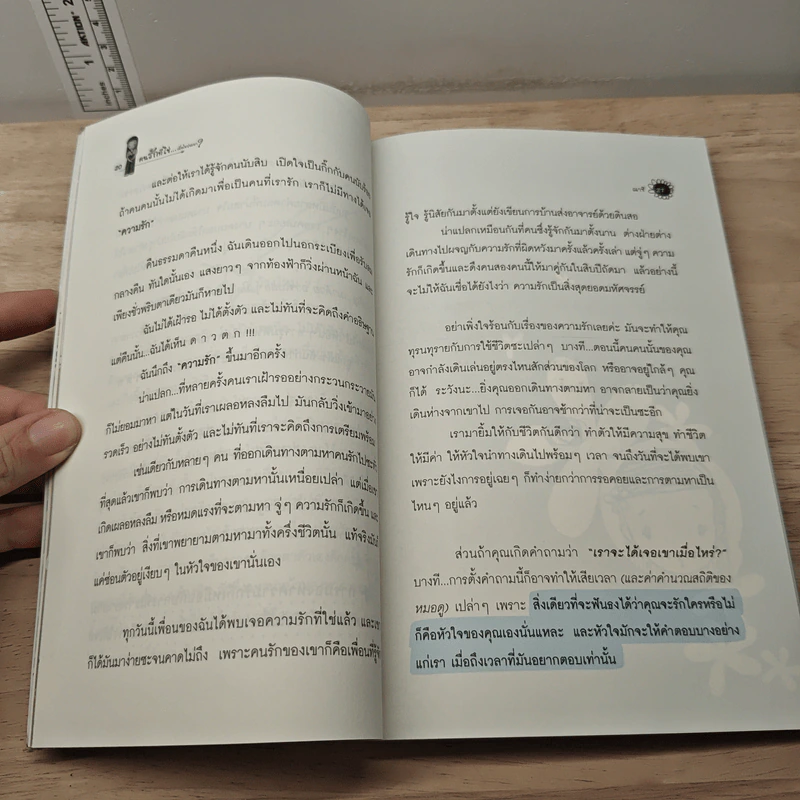 AKTION
inches
1
2
20
คนรู้ใจที่ใช่...
และต่อให้เราได้รู้จักคนนับสิบ เปิดใจเป็นกิ๊กกับคนนับ
ถ้าคนคนนั้นไม่ได้เกิดมาเพื่อเป็นคนที่เรารัก เราก็ไม่มีทางได้
"ความรัก"
คืนธรรมดาคืนหนึ่ง ฉันเดินออกไปนอกระเบียงเพื่อรับลม
กลางคืน ทันใดนั้นเอง แสงยาวๆ จากท้องฟ้าก็วิ่งผ่านหน้าฉัน และ
เพียงชั่วพริบตาเดียวมันก็หายไป
ฉันไม่ได้เฝ้ารอ ไม่ได้ตั้งตัว และไม่ทันที่จะคิดถึงคำอธิษฐาน
แต่คืนนั้น...ฉันได้เห็น ด า ว ต ก !!!
ฉันนึกถึง "ความรัก" ขึ้นมาอีกครั้ง
น่าแปลก...ที่หลายครั้งคนเราเฝ้ารออย่างกระวนกระวาย
ก็ไม่ยอมมาหา แต่ในวันที่เราเผลอหลงลืมไป มันกลับวิ่งเข้ามาอย่าง
รวดเร็ว อย่างไม่ทันตั้งตัว และไม่ทันที่เราจะคิดถึงการเตรียมพร้อม
เช่นเดียวกับหลายๆ คน ที่ออกเดินทางตามหาคนรักไป
ที่สุดแล้วเขาก็พบว่า การเดินทางตามหานั้นเหนื่อยเปล่า แต่เมื่อเขา
เกิดเผลอหลงลืม หรือหมดแรงที่จะตามหา จู่ๆ ความรักก็เกิดขึ้น และ
เขาก็พบว่า สิ่งที่เขาพยายามตามหามาทั้งครึ่งชีวิตนั้น แท้จริงมัน
แค่ซ่อนตัวอยู่เงียบๆ ในหัวใจของเขานั่นเอง
ทุกวันนี้เพื่อนของฉันได้พบเจอความรักที่ใช่แล้ว และเขา
ก็ได้มันมาง่ายซะจนคาดไม่ถึง เพราะคนรักของเขาก็คือเพื่อนที่รู้จัก
ณภารี
21
รู้ใจ รู้นิสัยกันมาตั้งแต่ยังเขียนการบ้านส่งอาจารย์ด้วยดินสอ
น่าแปลกเหมือนกันที่คนซึ่งรู้จักกันมาตั้งนาน ต่างฝ่ายต่าง
เดินทางไปผจญกับความรักที่ผิดหวังมาครั้งแล้วครั้งเล่า แต่จู่ๆ ความ
รักก็เกิดขึ้นและดึงคนสองคนนี้ให้มาคู่กันในสิบปีถัดมา แล้วอย่างนี้
จะไม่ให้ฉันเชื่อได้ยังไงว่า ความรักเป็นสิ่งสุดยอดมหัศจรรย์
อย่าเพิ่งใจร้อนกับเรื่องของความรักเลยค่ะ มันจะทำให้คุณ
ทุรนทุรายกับการใช้ชีวิตซะเปล่าๆ บางที...ตอนนี้คนคนนั้นของคุณ
อาจกำลังเดินเล่นอยู่ตรงไหนสักส่วนของโลก หรืออาจอยู่ใกล้ๆ คุณ
ก็ได้ ระวังนะ...ยิ่งคุณออกเดินทางตามหา อาจกลายเป็นว่าคุณยิ่ง
เดินห่างจากเขาไป การเจอกันอาจช้ากว่าที่น่าจะเป็นซะอีก
เรามายิ้มให้กับชีวิตกันดีกว่า ทำตัวให้มีความสุข ทำชีวิต
ให้มีค่า ให้หัวใจนำทางเดินไปพร้อมๆ เวลา จนถึงวันที่จะได้พบเขา
เพราะยังไงการอยู่เฉยๆ ก็ทำง่ายกว่าการรอคอยและการตามหาเป็น
ไหนๆ อยู่แล้ว
ส่วนถ้าคุณเกิดคำถามว่า "เราจะได้เจอเขาเมื่อไหร่?"
บางที...การตั้งคำถามนี้ก็อาจทำให้เสียเวลา (และค่าคำนวณสถิติของ
หมอดู) เปล่าๆ เพราะ สิ่งเดียวที่จะฟันธงได้ว่าคุณจะรักใครหรือไม่
ก็คือหัวใจของคุณเองนั่นแหละ และหัวใจมักจะให้คำตอบบางอย่าง
แก่เรา เมื่อถึงเวลาที่มันอยากตอบเท่านั้น